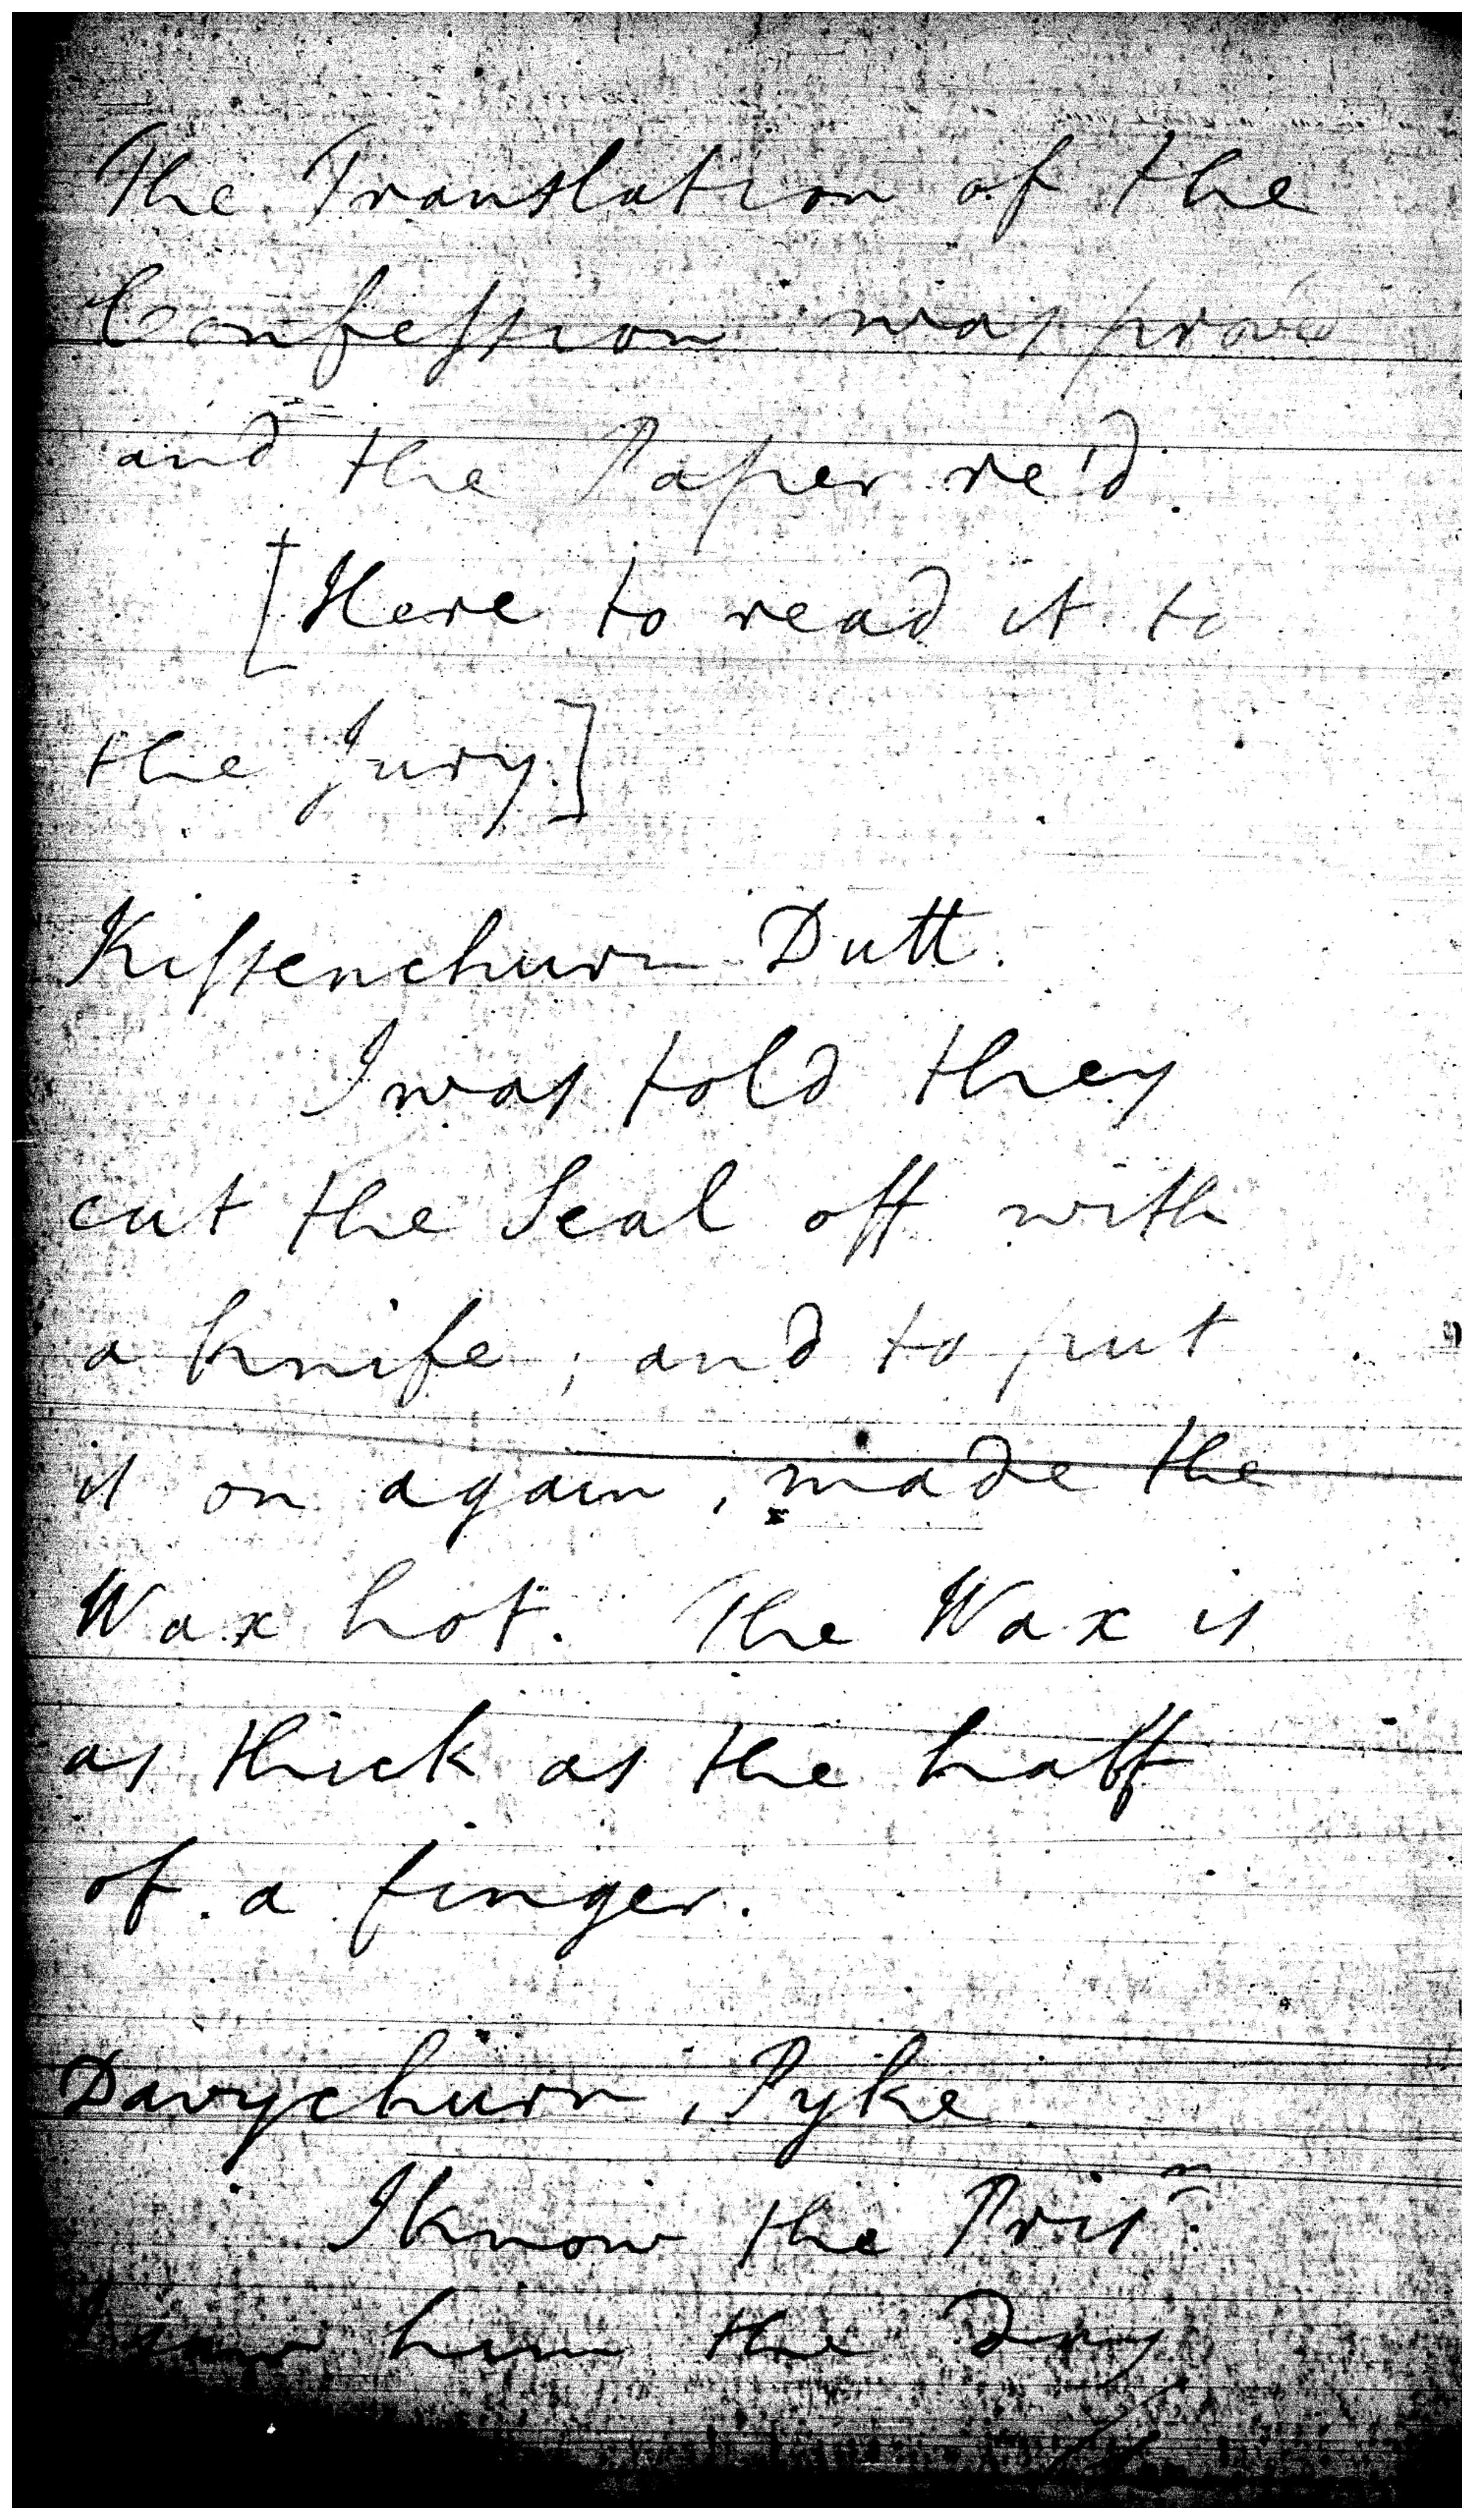 The Translation of the
Confession was prov'd
and the Paper re'd.
[Here to read it to
the Jury.]
Kissenchurn Dutt.
I was told they
cut the Seal off with
a knife; and to put
it on again, made the
Wax hot. The Wax is
as thick as the half
of a finger.
Davychurn, Pyke
I know the Prisn.
saw him the Day